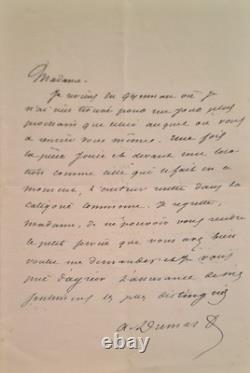 Madame.
Je reviens du Gymnase où je
n'ai rien trouvé pour un jour plus
prochain que celui auquel on vous
a remise vous même. Une fois
la pièce jouée et devant une
comme celle qui se fait en ce
moment, l'auteur rentre dans la
catégorie commune. Je regrette,
Madame, de ne pouvoir vous rendre
le petit service que vous avez bien
voulu me demander et je vous
prie d'agréer l'assurance de mes
sentiments les plus distingués
A. Dumas f
© wortho.com